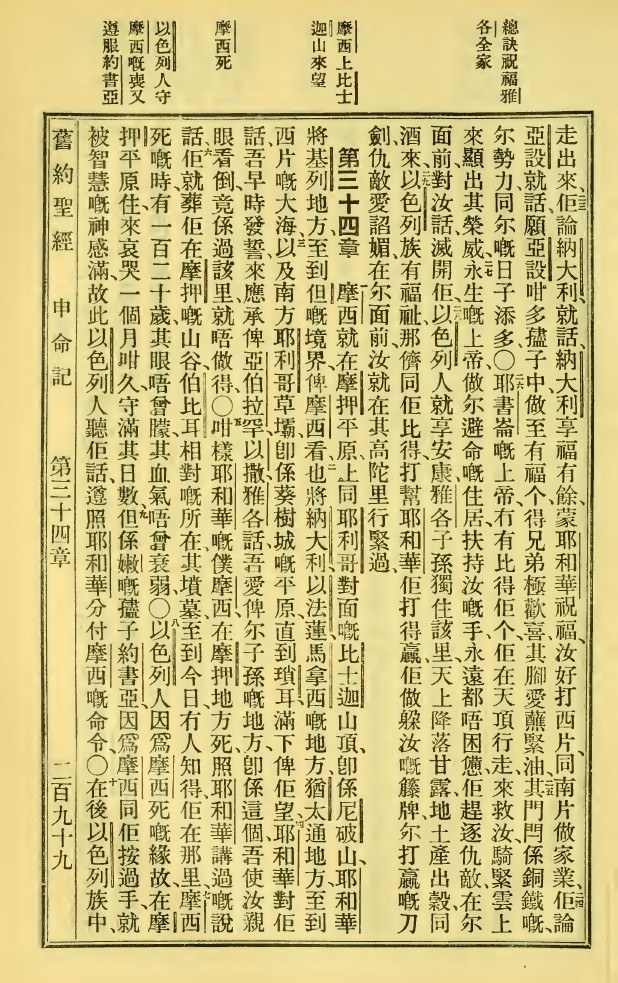 總訣祝福雅
各全家
摩西上比士
迦山來望
摩西死
以色列人守
摩西嘅喪又
遵服約書亞
走出來、佢論納大利就話、納大利享福有餘、蒙耶和華祝福、汝好打西片、同南片做家業、佢論
亞設就話、願亞設咁多孻子中做至有福个、得兄弟極歡喜其腳愛蘸緊油、其門閂係銅鐵嘅、
尔勢力同尔嘅日子添多○耶書崙嘅上帝、冇有比得佢个、佢在天頂行走來救汝、騎緊雲上
來、顯出其榮威、永生嘅上帝、做尔避命嘅住居、扶持汝嘅手、永遠都唔困憊、佢趕逐仇敵在尔
面前、對汝話、滅開佢、以色列人就享安康、雅各子孫獨住該里、天上降落甘露、地土產出穀同
酒來、以色列族有福祉、那儕同佢比得、打幫耶和華佢打得贏、佢做躱汝嘅籐牌、尔打贏嘅刀
劍、仇敵愛諂媚在尔面前、汝就在其高陀里行緊過、
第三十四章 摩西就在摩押平原上、同耶利哥對面嘅比士迦山頂、即係尼破山、耶和華
將基列地方、至到但嘅境界、俾摩西看也、將納大利、以法蓮、馬拿西嘅地方、猶太通地方、至到
西片嘅大海、以及南方、耶利哥草壩、即係葵樹城嘅平原、直到瑣耳、滿下俾佢望、耶和華對佢
話、吾早時發誓來應承俾亞伯拉罕、以撒、雅各話、吾愛俾尔子孫嘅地方、即係這個、吾使汝親
眼看倒、竟係過該里就唔做得○咁樣耶和華嘅僕摩西、在摩押地方死、照耶和華講過嘅說
話、佢就葬佢在摩押嘅山谷、伯比耳相對嘅所在、其墳墓至到今日冇人知得佢在那里、摩西
死嘅時、有一百二十歲、其眼唔曾矇、其血氣唔曾衰弱○以色列人因爲摩西死嘅緣故、在摩
押平原住來哀哭一個月、咁久守滿其日數、但係嫩嘅孻子約書亞、因爲摩西同佢按過手、就
被智慧嘅神感滿、故此以色列人聽佢話、遵照耶和華分付摩西嘅命令○在後以色列族中、
舊約聖經 申命記 第三十四章 二百九十九